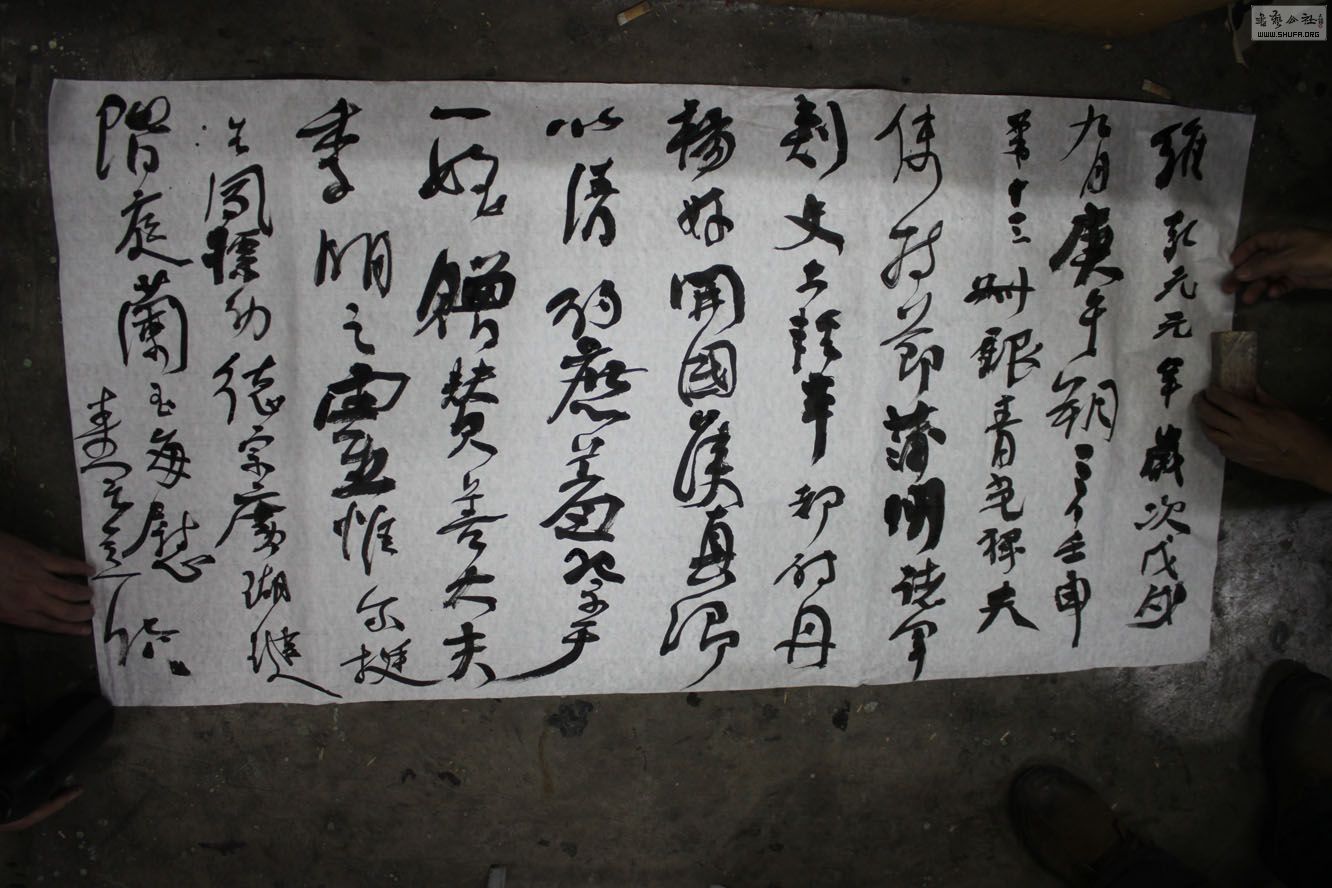 維乾元元年歲次戊戌
九月庚午朔三日壬申
第十三叔銀青光祿夫
使持節蒲州諸軍
刺史上輕車都尉丹
楊縣開國侯真卿
以清酌庶羞祭于
亡姪贈贊善大夫
季明之靈惟爾挺
生夙標幼德宗廟瑚璉
階庭蘭玉每慰
書藝公社
WWW.SHUFA.ORG